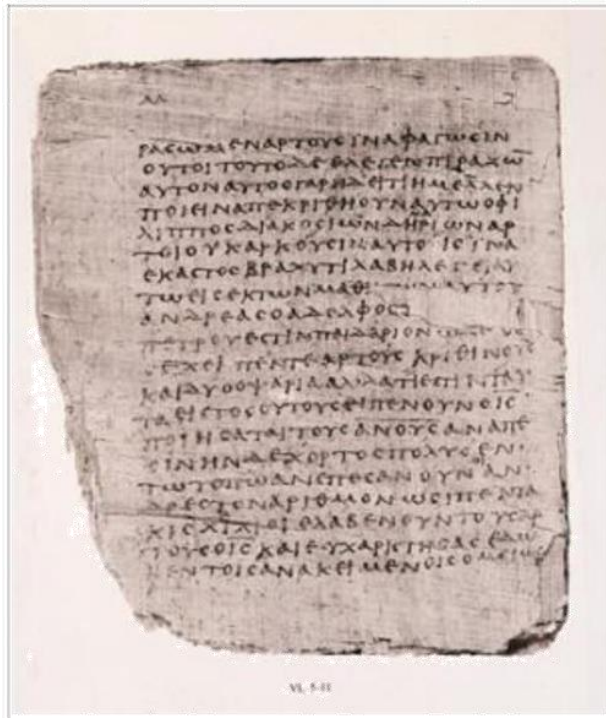 ΡΑϹΩΜΕΝΑΡΤΟΥϹΙΝΑΦΑΓΩϹΙΝ
ΟΥΤΟΙΤΟΥΤΟΔΕΕΛΕΓΕΝΠΙΡΑΖΩ̅
ΑΥΤΟΝΑΥΤΟϹΓΑΡΗΔΕΙΤΙΗΜΕΛΛΕΝ
ΠΟΙΕΙΝΑΠΕΚΡΙΘΗΟΥΝΑΥΤΩΟΦΙ
ΛΙΠΠΟϹΔΙΑΚΟϹΙΩΝΔΗΡΙΩΝΑΡ
ΤΟΙΟΥΚΑΡΚΟΥϹΙΝΑΥΤΟΙϹΙΝΑ
ΕΚΑϹΤΟϹΒΡΑΧΥΤΙΛΑΒΗΛΕΓΕΙΑΥ
ΤΩΕΙϹΕΚΤΩΝΜΑΘΗΤΩΝΑΥΤΟΥ
ΑΝΔΡΕΑϹΟΑΔΕΛΦΟϹ
ΠΕΤΡΟΥΕϹΤΙΝΠΑΙΔΑΡΙΟΝ
ΕΧΕΙ ΠΕΝΤΕΑΡΤΟΥϹΚΡΙΘΙΝΟΥϹ
ΚΑΙΔΥΟΟΨΑΡΙΑΑΛΛΑΤΙΕϹΤΙΝΤΑΥ
ΤΑΕΙϹΤΟϹΟΥΤΟΥϹΕΙΠΕΝΟΥΝΟΙ̅Ϲ̅
ΠΟΙΗϹΑΤΑΙΤΟΥϹΑΝΟΥϹΑΝΑΠΕ
ϹΙΝΗΝΔΕΧΟΡΤΟϹΠΟΛΥϹΕΝ
ΤΩΤΟΠΩΑΝΕΠΕϹΑΝΟΥΝΑΝ
ΔΡΕϹΤΟΝΑΡΙΘΜΟΝΩϹΙΠΕΝΤΑ
ΚΙϹΧΙΛΙΟΙΕΛΑΒΕΝΟΥΝΤΟΥϹΑΡ
ΤΟΥϹΟΙϹΚΑΙΕΥΧΑΡΙϹΤΗϹΑϹΕΔΩ
ΚΕΝΤΟΙϹΑΝΑΚΕΙΜΕΝΟΙϹΟΜΕΙΩϹ
VI, 5-11